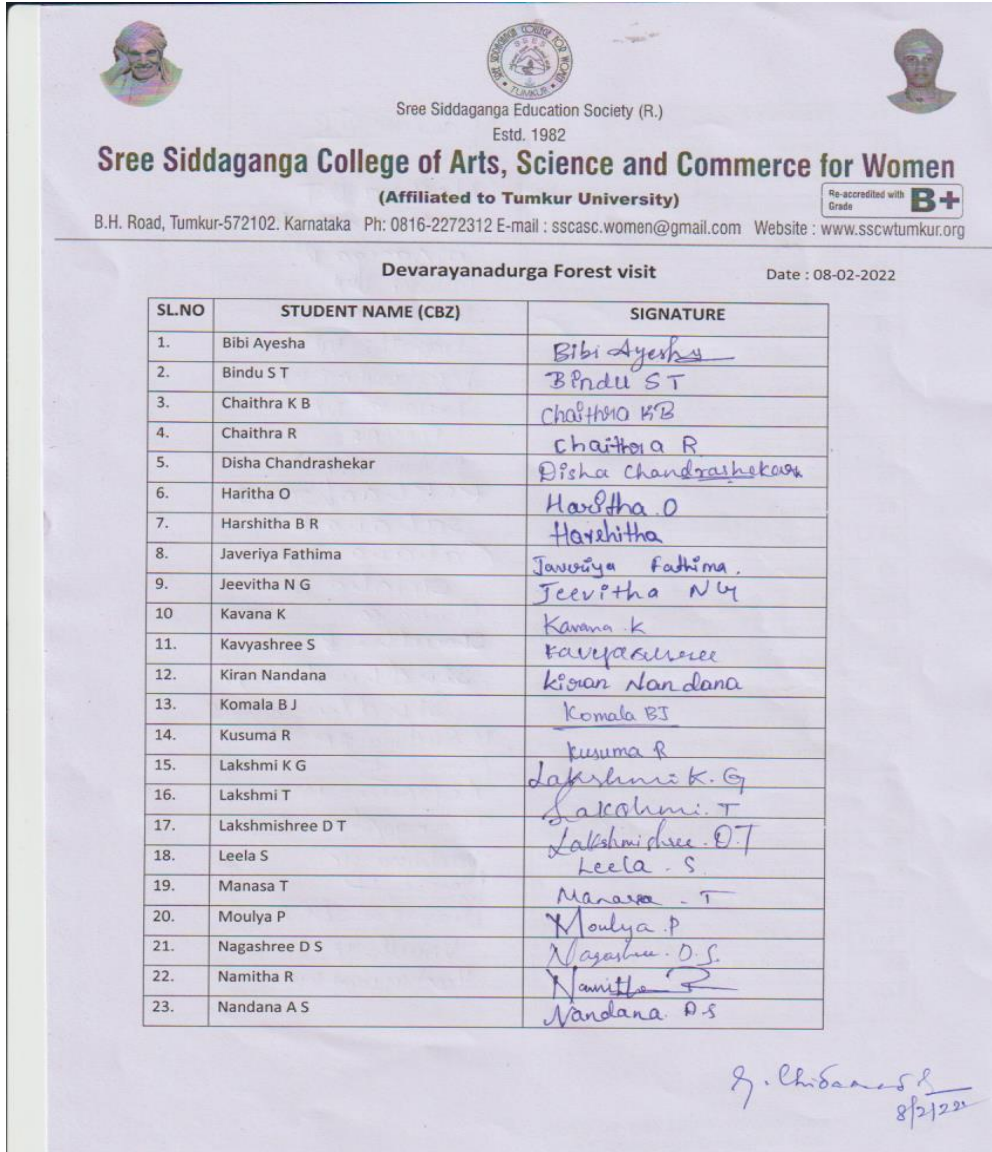 SREE SIDDAGANGA COLLEGE FOR WOMEN
S S E S
TUMKUR
Sree Siddaganga Education Society (R.)
Estd. 1982
Sree Siddaganga College of Arts, Science and Commerce for Women
(Affiliated to Tumkur University)
Re-accredited with Grade B+
B.H. Road, Tumkur-572102. Karnataka Ph: 0816-2272312 E-mail : sscasc.women@gmail.com Website : www.sscwtumkur.org
Devarayanadurga Forest visit Date : 08-02-2022
SL.NO STUDENT NAME (CBZ) SIGNATURE
1. Bibi Ayesha Bibi Ayesha
2. Bindu S T Bindu ST
3. Chaithra K B Chaithra KB
4. Chaithra R Chaithra R
5. Disha Chandrashekar Disha Chandrashekar
6. Haritha O Haritha.O
7. Harshitha B R Harshitha
8. Javeriya Fathima Javeriya Fathima.
9. Jeevitha N G Jeevitha NG
10 Kavana K Kavana.K
11. Kavyashree S Kavyashree
12. Kiran Nandana Kiran Nandana
13. Komala B J Komala BJ
14. Kusuma R Kusuma R
15. Lakshmi K G Lakshmi K.G
16. Lakshmi T Lakshmi.T
17. Lakshmishree D T Lakshmishree.D.T
18. Leela S Leela.S
19. Manasa T Manasa - T
20. Moulya P Moulya.P
21. Nagashree D S Nagashree.D.S.
22. Namitha R Namitha R
23. Nandana A S Nandana A.S
8/2/22